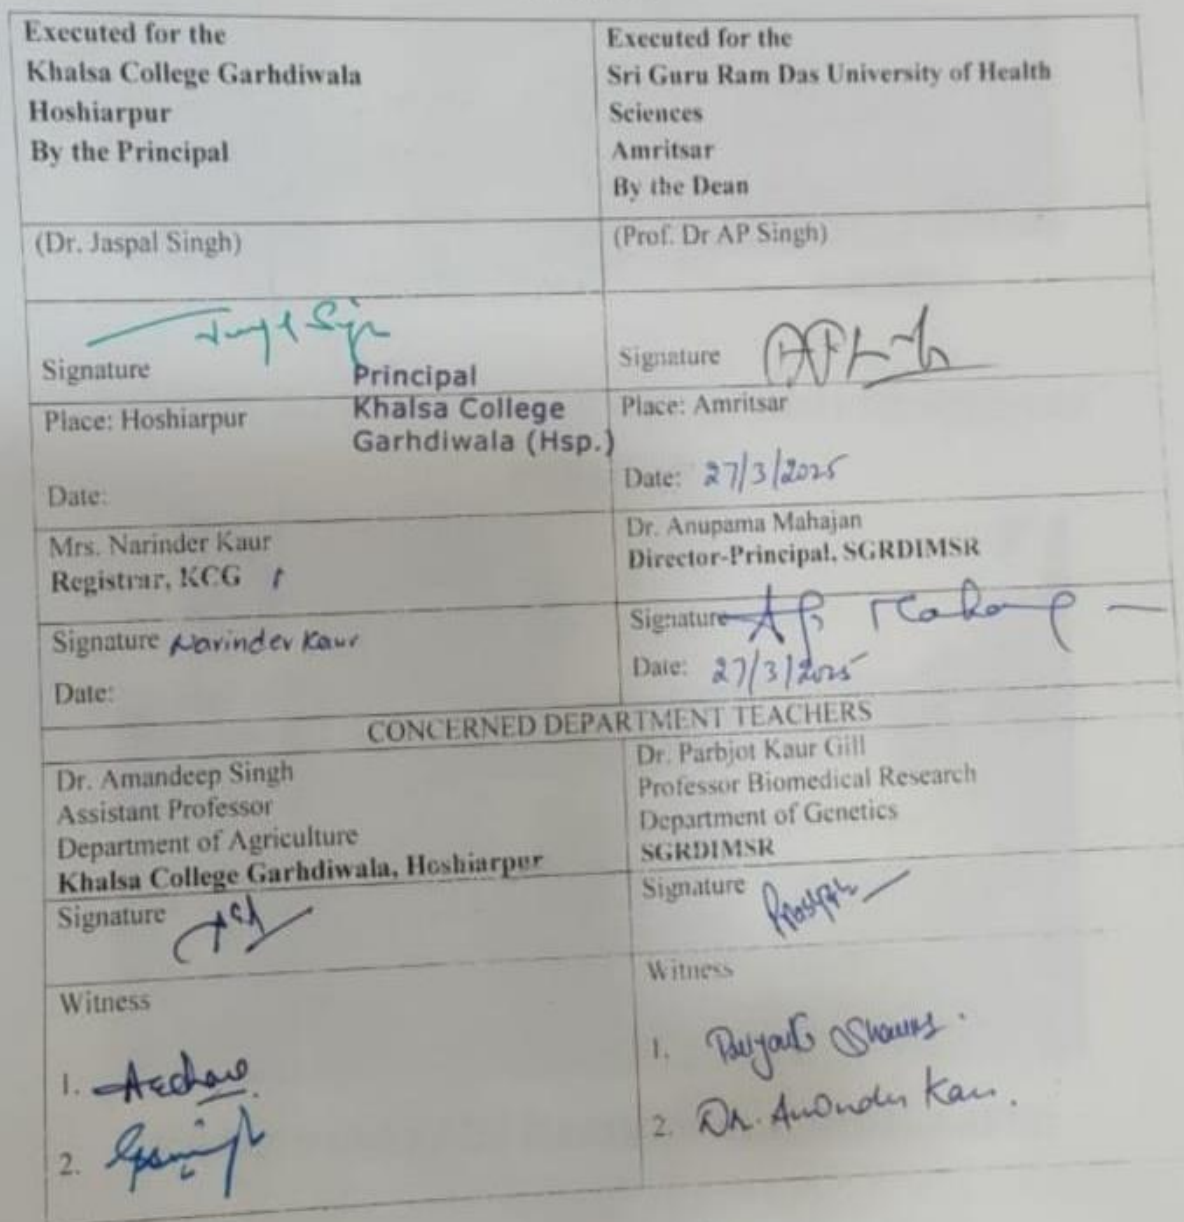 Executed for the
Khalsa College Garhdiwala
Hoshiarpur
By the Principal
Executed for the
Sri Guru Ram Das University of Health
Sciences
Amritsar
By the Dean
(Dr. Jaspal Singh)
(Prof. Dr AP Singh)
Signature
Principal
Khalsa College
Garhdiwala (Hsp.)
Signature
Place: Hoshiarpur
Date:
Place: Amritsar
Date: 27/3/2025
Mrs. Narinder Kaur
Registrar, KCG
Dr. Anupama Mahajan
Director-Principal, SGRDIMSR
Signature Narinder Kaur
Date:
Signature
Date: 27/3/2025
CONCERNED DEPARTMENT TEACHERS
Dr. Amandeep Singh
Assistant Professor
Department of Agriculture
Khalsa College Garhdiwala, Hoshiarpur
Dr. Parbjot Kaur Gill
Professor Biomedical Research
Department of Genetics
SGRDIMSR
Signature
Signature
Witness
1.
2.
Witness
1.
2. Dr.